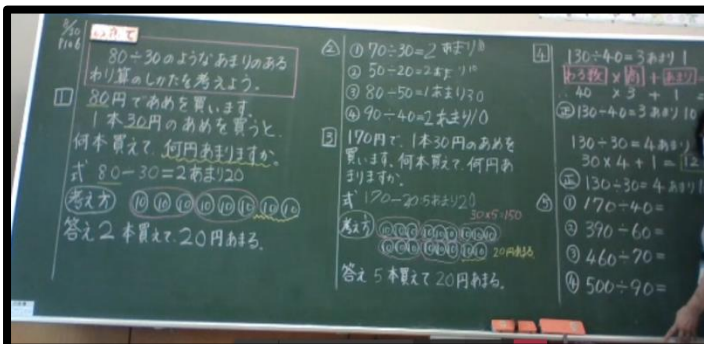 80÷30のようなあまりのある
わり算のしかたを考えよう。
1
80円であめを買います。
1本30円のあめを買うと、
何本買えて、何円あまりますか。
式 80-30=2あまり20
考え方 10 10 10 10 10 10 10 10
答え2本買えて、20円あまる。
2
① 70÷30=2あまり10
② 50÷20=2あまり10
③ 80÷50=1あまり30
④ 90÷40=2あまり10
3
170円で、1本30円のあめを
買います。何本買えて、何円あ
まりますか。
式 170-20:5あまり20
30×5=150
考え方 10 10 10 10 10 10 10 10 10
10 10 10 10 10 10 10 10 20円あまる
答え 5本買えて20円あまる。
4
130÷40=3あまり1
わる数 × 商 + あまり =
40 × 3 + 1 =
正 130÷40=3あまり10
130÷30=4あまり
30×4+1=12
正 130÷30=4あまり1
5
① 170÷40=
② 390÷60=
③ 460÷70=
④ 500÷90=